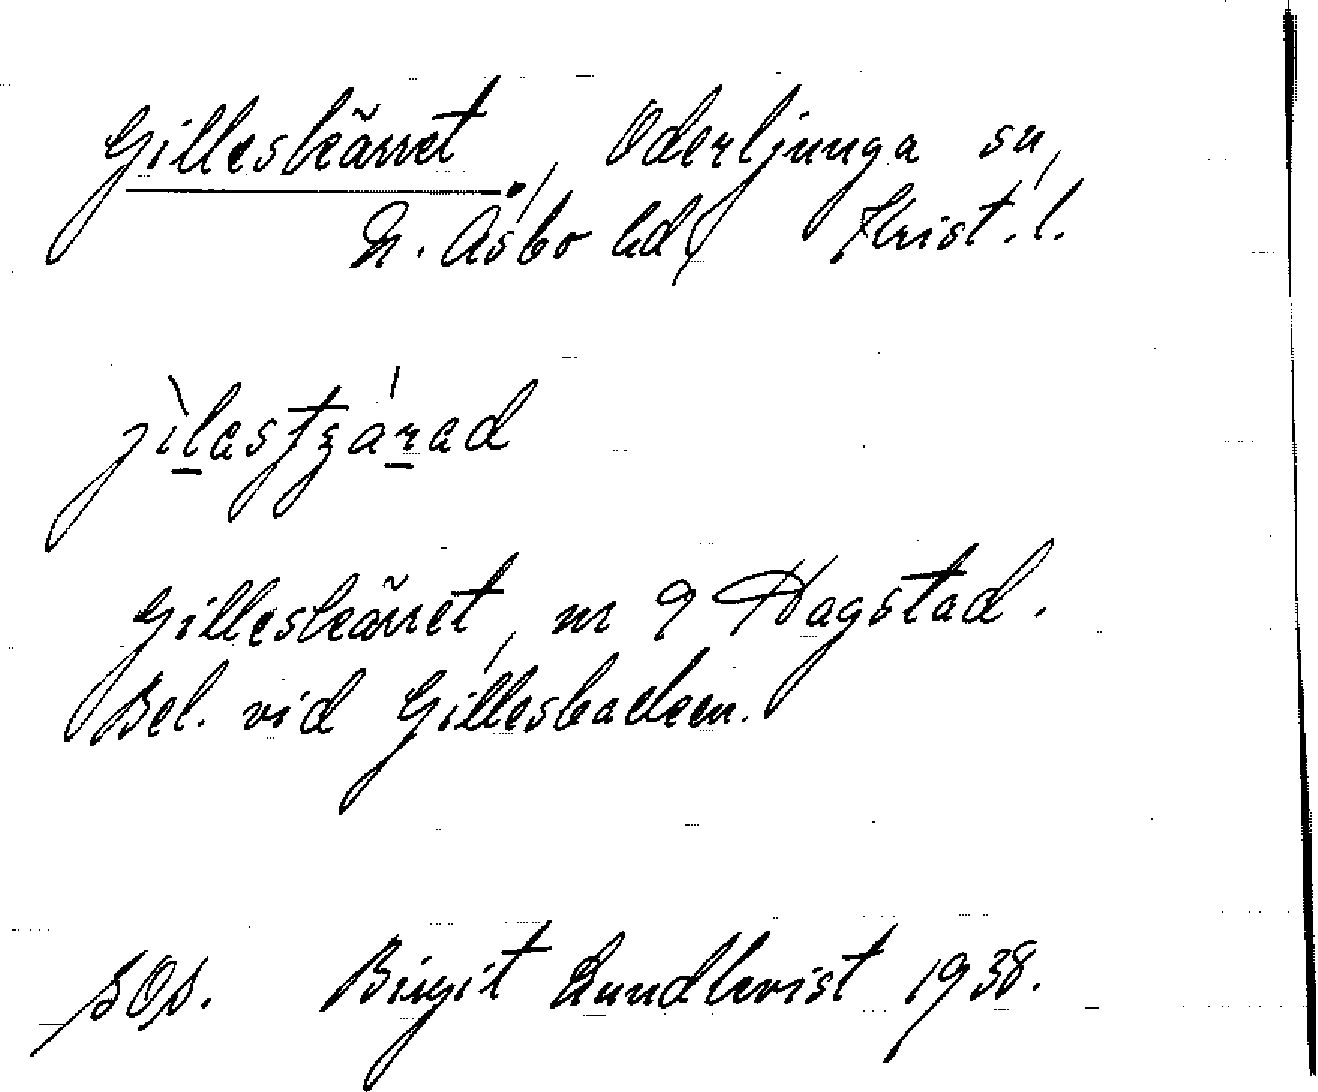 Gilleskärret, Oderljunga sn,
N. Åsbo hd, Krist. l.
Gilleskärret, nr 9 Hagstad.
Bel. vid Gillesbacken.
SOS. Birgit Lundkvist 1938.